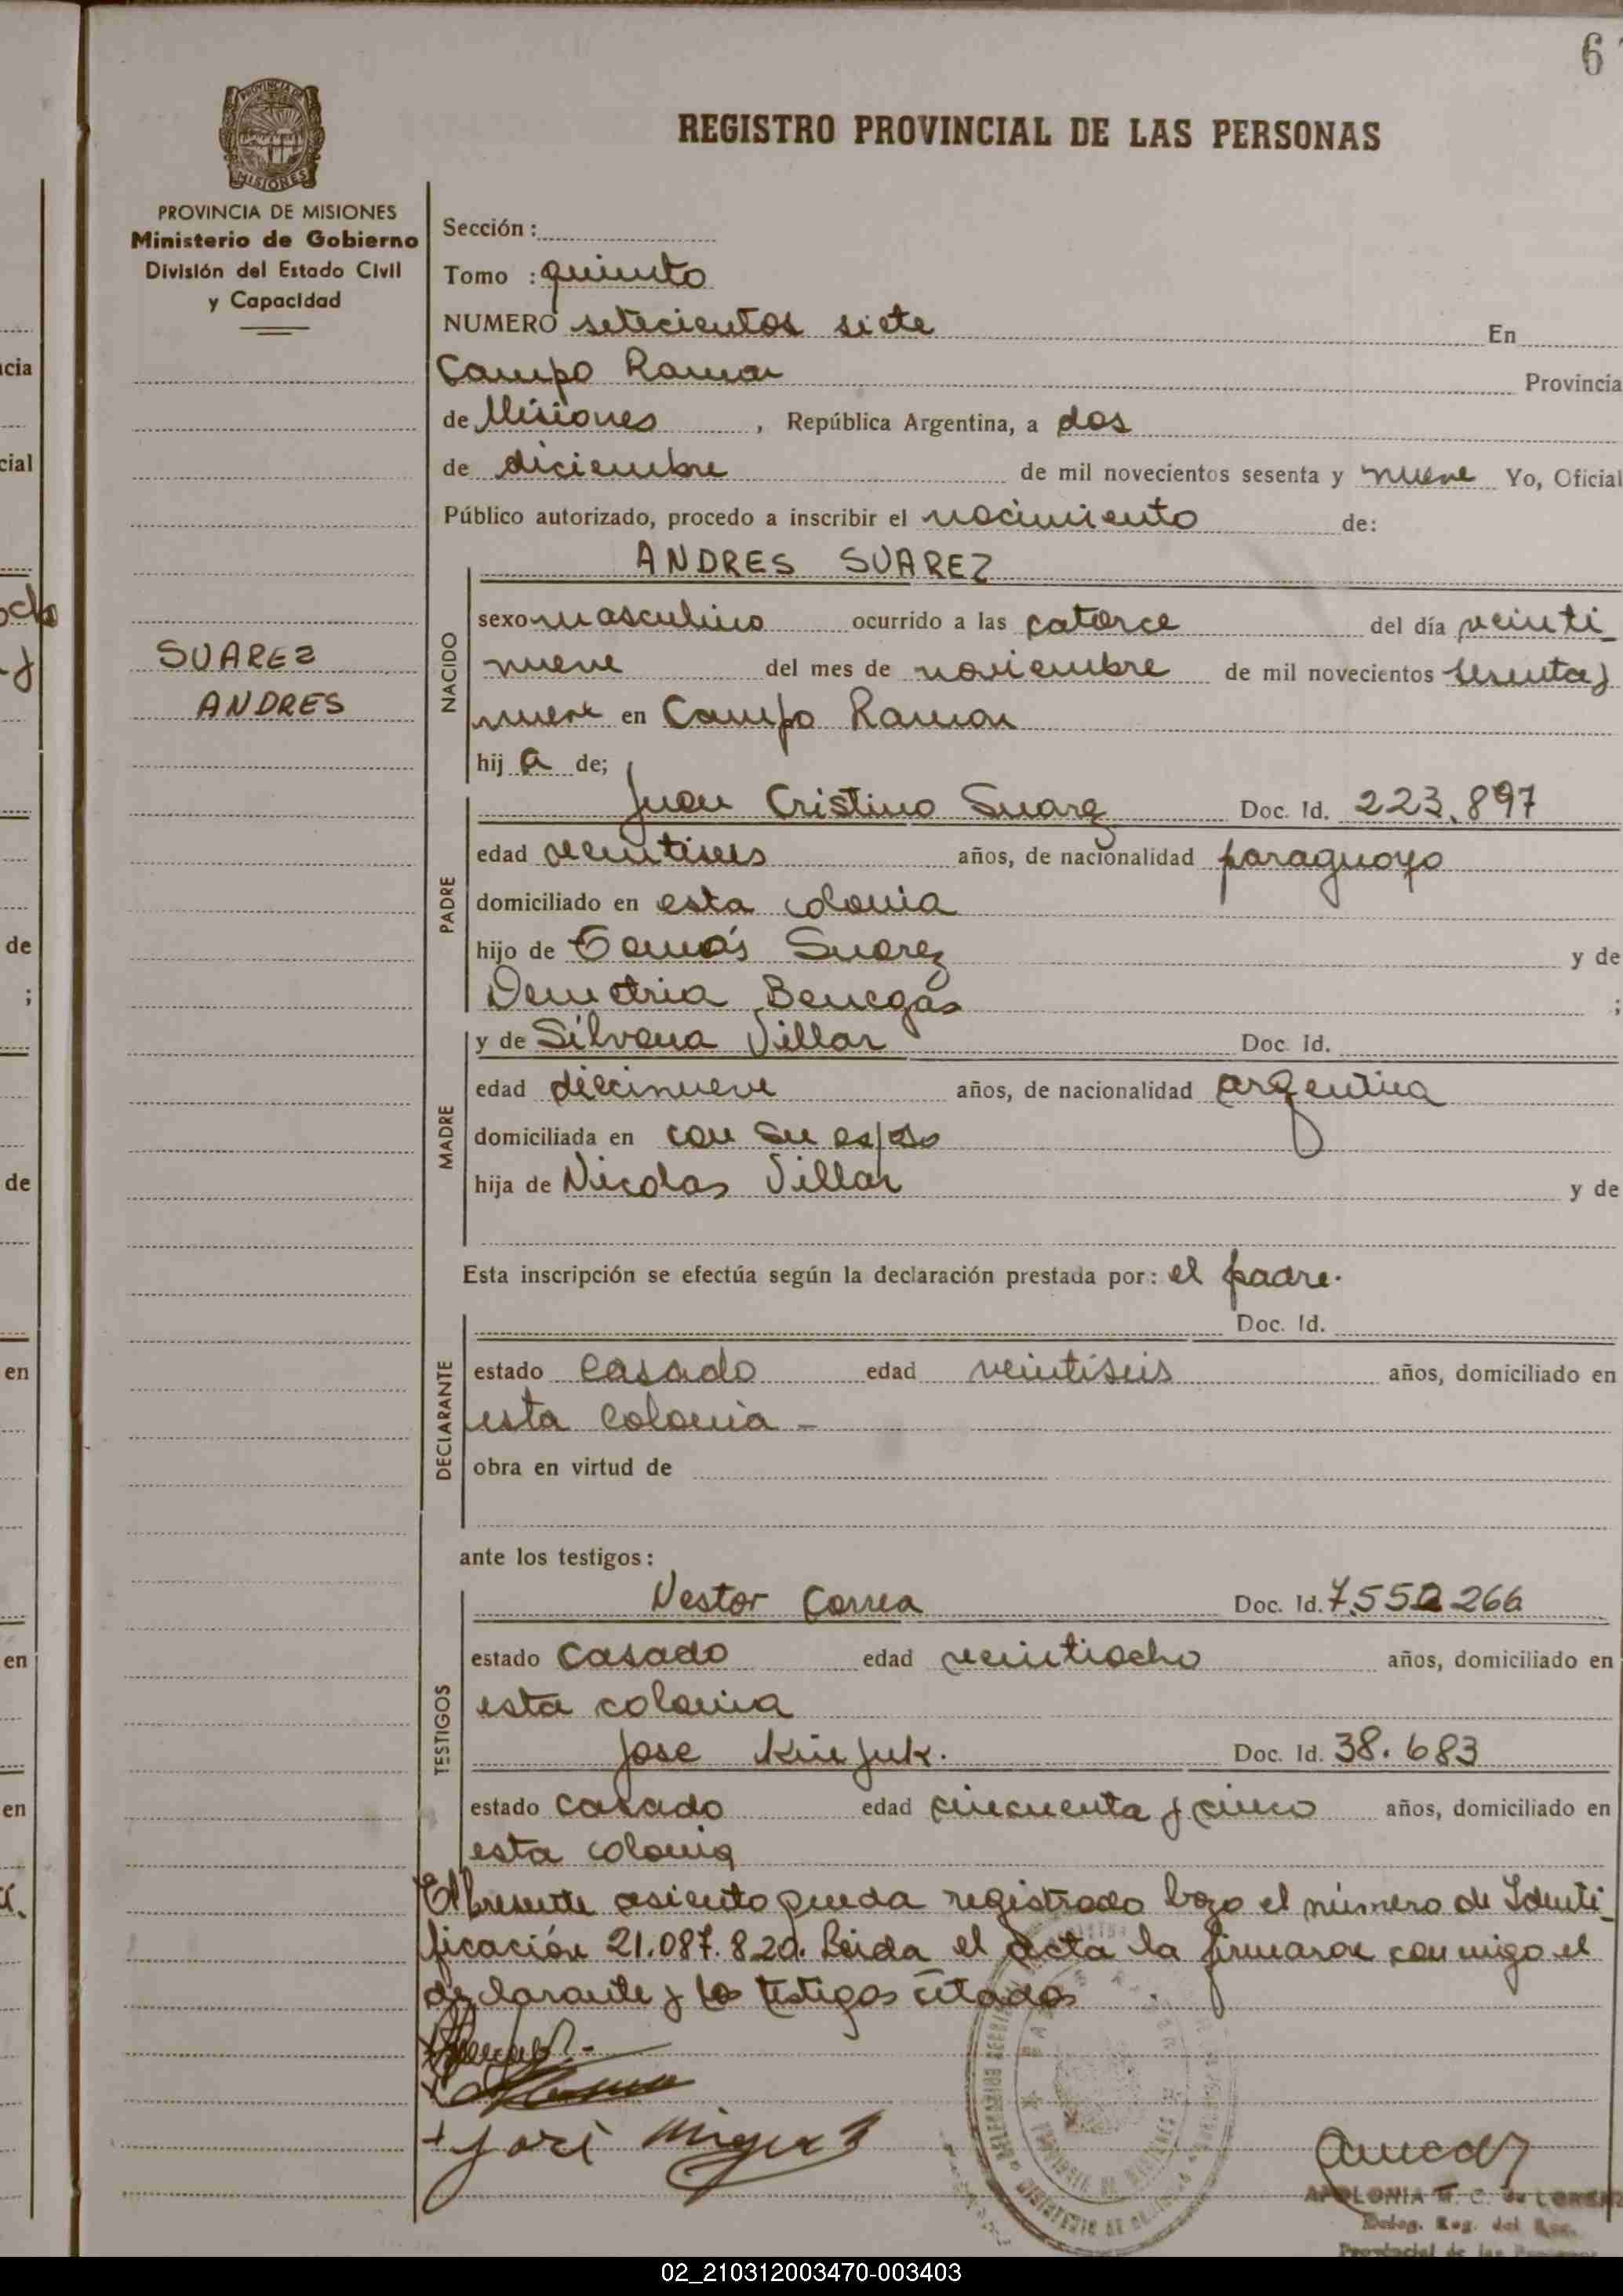 6
REGISTRO PROVINCIAL DE LAS PERSONAS
PROVINCIA DE MISIONES
Ministerio de Gobierno
División del Estado Civil
y Capacidad
Sección :
Tomo : quinto
NUMERO setecientos siete En
Campo Ramon Provincia
de Misiones , República Argentina, a dos
de diciembre de mil novecientos sesenta y nueve Yo, Oficial
Público autorizado, procedo a inscribir el nacimiento de:
ANDRES SUAREZ
SUAREZ
ANDRES
NACIDO
sexo masculino ocurrido a las catorce del día veinti
nueve del mes de noviembre de mil novecientos sesenta y
nueve en Campo Ramon
hij a de;
PADRE
Juan Cristino Suarez Doc. Id. 223.897
edad veintiseis años, de nacionalidad paraguayo
domiciliado en esta colonia
hijo de Tomás Suarez y de
Demetria Benegas ;
MADRE
y de Silvana Villar Doc. Id.
edad diecinueve años, de nacionalidad argentina
domiciliada en con su esposo
hija de Nicolas Villar y de
Esta inscripción se efectúa según la declaración prestada por: el padre.
DECLARANTE
Doc. Id.
estado casado edad veintiseis años, domiciliado en
esta colonia -
obra en virtud de
ante los testigos:
TESTIGOS
Nestor Correa Doc. Id. 7.552 266
estado casado edad veintiocho años, domiciliado en
esta colonia
Jose Doc. Id. 38.683
estado casado edad cincuenta y cinco años, domiciliado en
esta colonia
El presente asiento queda registrado bajo el número de Identi
ficación 21.087.820. Leida el acta la firmaron conmigo el
declarante y los testigos citados
APOLONIA M. C. de
02_210312003470-003403